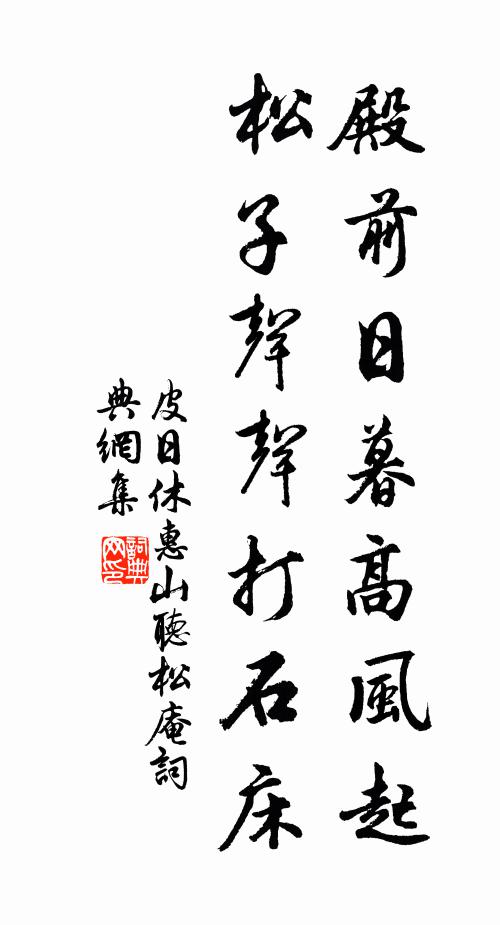 殿前日暮高風起
松子聲聲打石床
皮日休惠山聽松庵詞
典網集
詞典網印